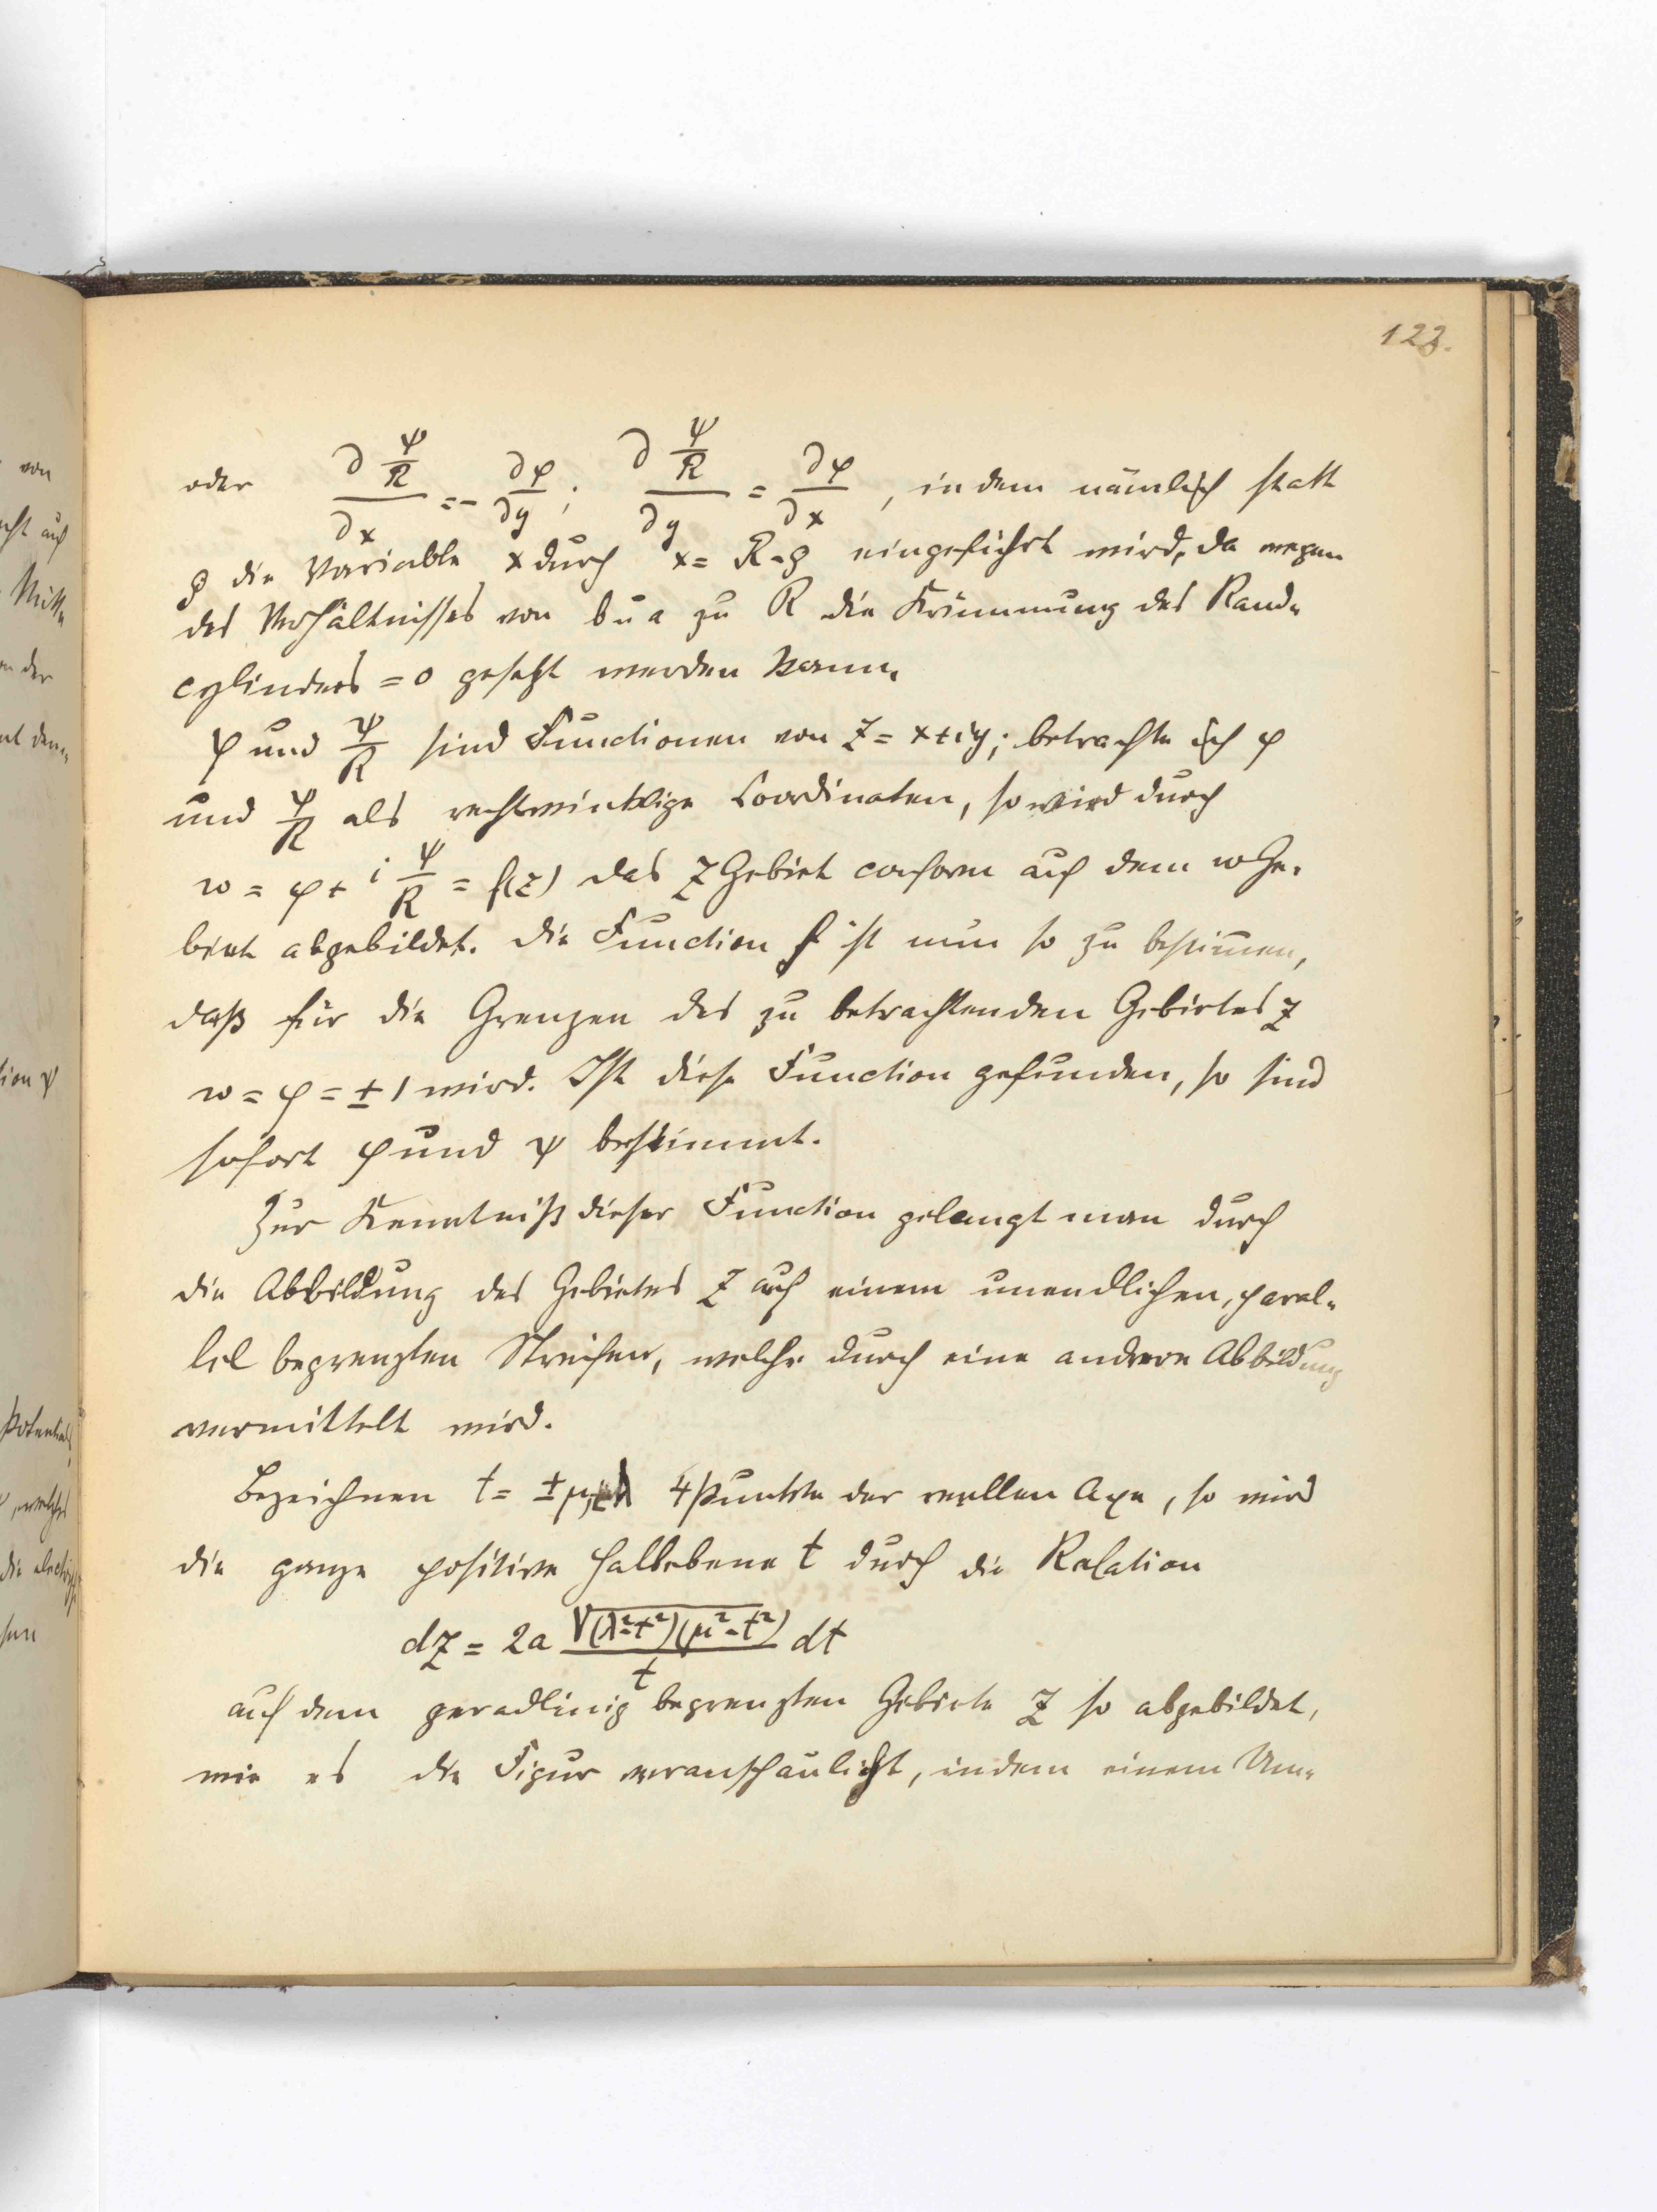 von
nicht auf
Mitte
an der
mit dem-
tion ψ
Potentials
die electrische
122.
oder ∂ψ/R / ∂x = - ∂φ/∂y ; ∂ψ/R / ∂y = ∂φ/∂x , indem nämlich statt
ρ die Variable x durch x = R-ρ eingeführt wird, da wegen
des Verhältnisses von b u a zu R die Krümmung des Rand-
cylinders = 0 gesetzt werden kann.
φ und ψ/R sind Functionen von z = x+iy; betrachte ich φ
und ψ/R als rechtwinklige Coordinaten, so wird durch
w = φ + i ψ/R = f(z) das z Gebiet conform auf dem w Ge-
biete abgebildet. Die Function f ist nun so zu bestim̅en,
daß für die Grenzen des zu betrachtenden Gebietes z
w = φ = ± 1 wird. Ist diese Function gefunden, so sind
sofort φ und ψ bestimmt.
Zur Kenntniß dieser Function gelangt man durch
die Abbildung des Gebietes z auf einem unendlichen, paral-
lel begrenzten Streifen, welche durch eine andere Abbildung
vermittelt wird.
Bezeichnen t = ±μ, ±λ 4 Punkte der reellen Axe, so wird
die ganze positive Halbebene t durch die Relation
dz = 2a √(λ²-t²)(μ²-t²) / t dt
auf dem geradlinig begrenzten Gebiete z so abgebildet,
wie es die Figur veranschaulicht, indem einem Um-